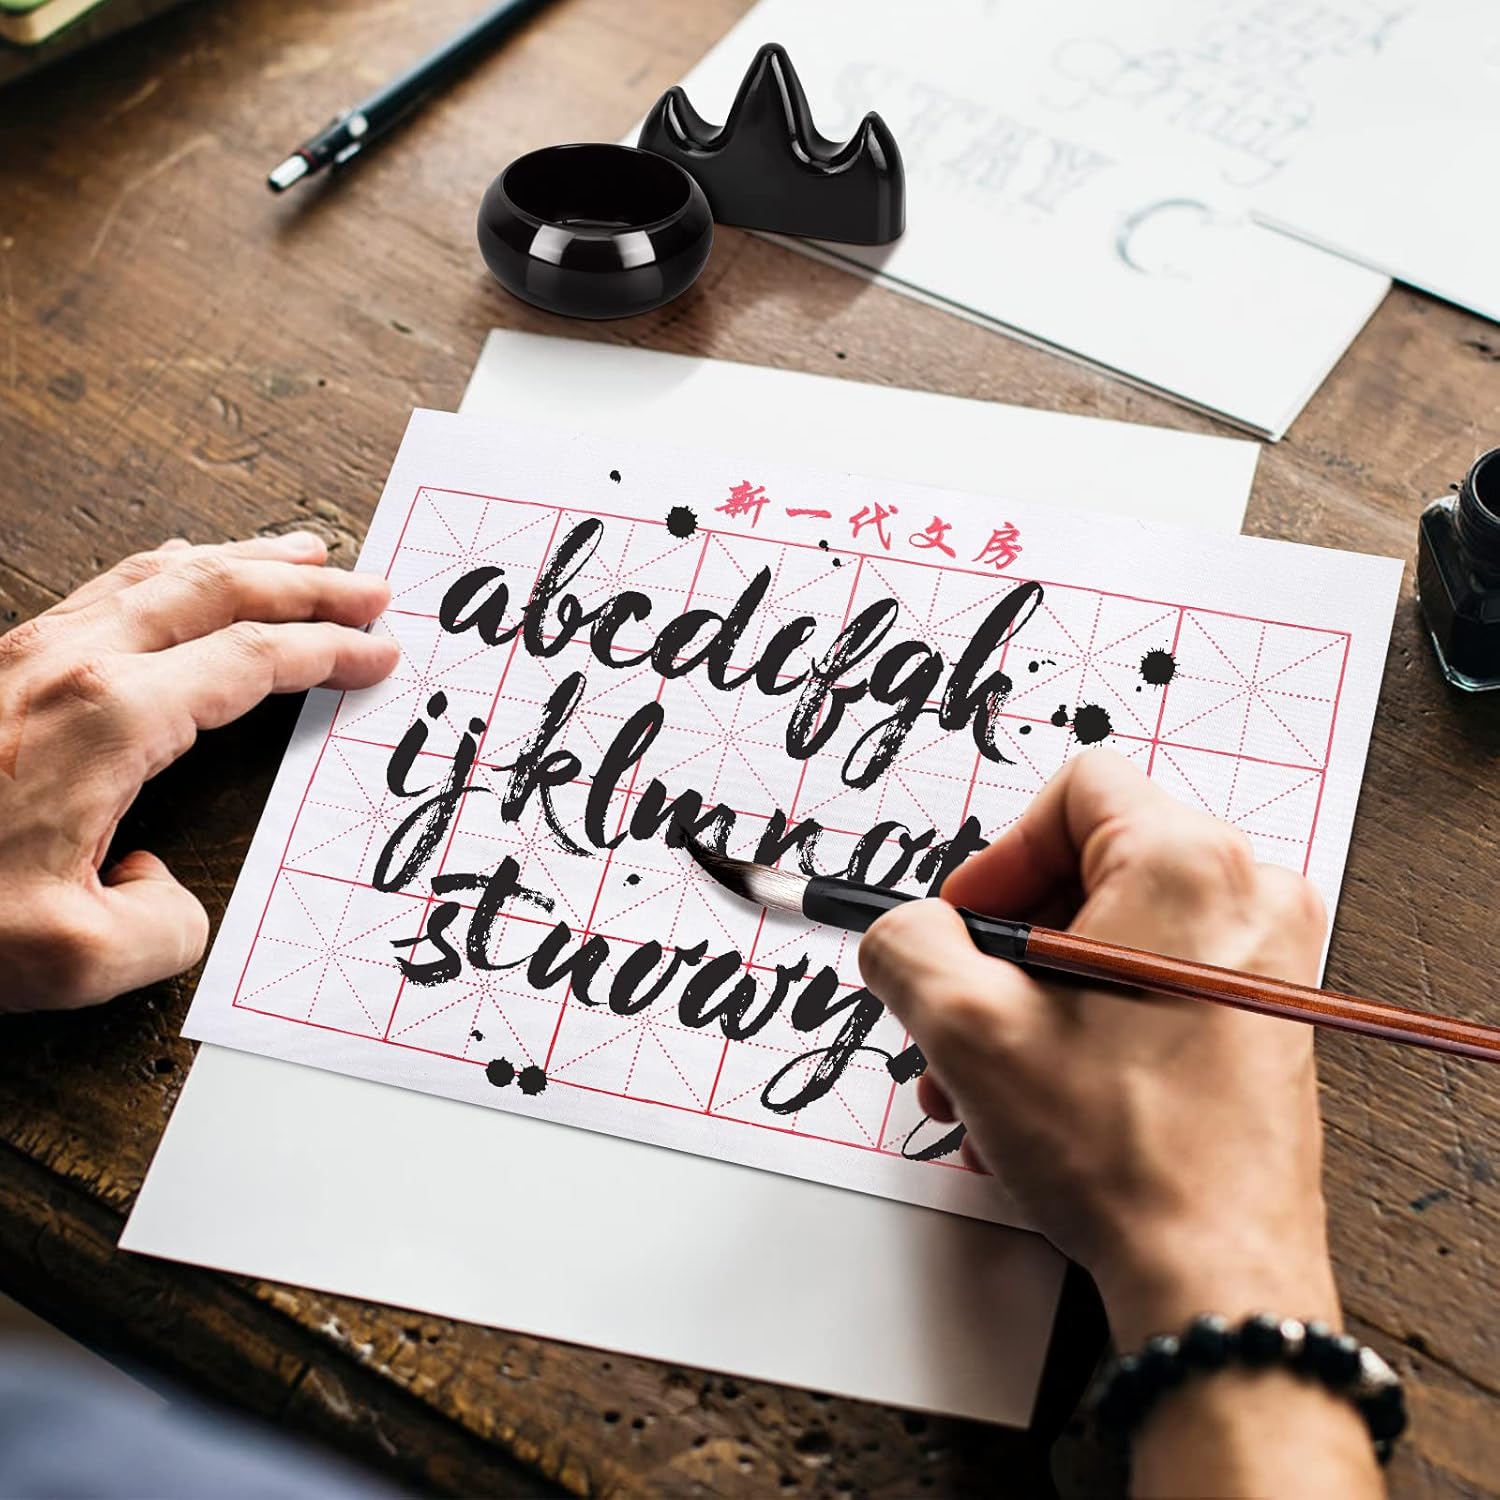 新一代文房
abcdefgh
ijklmnop
stuvwy